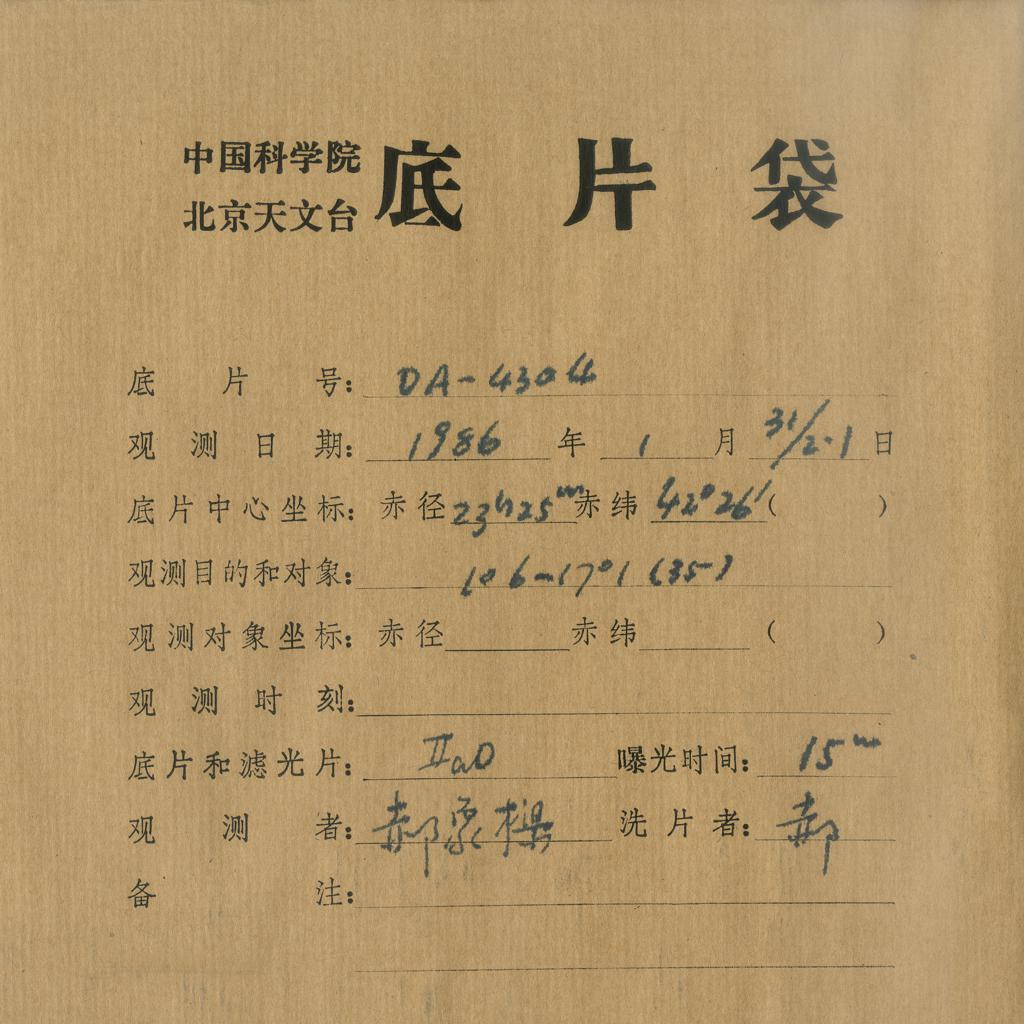 中国科学院
北京天文台
底片袋
底片号: DA-4304
观测日期: 1986 年 1 月 31/2.1 日
底片中心坐标: 赤径 23h25m 赤纬 42°26′ ( )
观测目的和对象: 106-1701 (35)
观测对象坐标: 赤径 赤纬 ( )
观测时刻:
底片和滤光片: IIaO 曝光时间: 15m
观测者: 郝象樑 洗片者: 郝
备注: